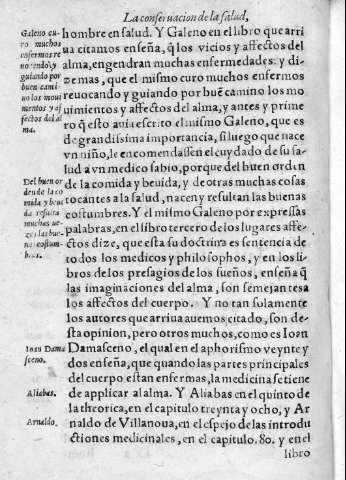 La conseruacion de la salud,
hombre en salud. Y Galeno en el libro que arri
ua citamos enseña, q̃ los vicios y affectos del
alma, engendran muchas enfermedades: y di-
ze mas, que el mismo curo muchos enfermos
reuocando y guiando por buẽ camino los mo
uimientos y affectos del alma, y antes y prime
ro q̃ esto aui a escrito el mismo Galeno, que es
de grandissima importancia, si luego que nace
vn niño, le encomendassen el cuydado de su sa-
lud a vn medico sabio, porque del buen ordẽn
de la comida y beuida, y de otras muchas cosas
tocantes a la salud, nacen y resultan las buenas
costumbres. Y el mismo Galeno por expressas
palabras, en el libro tercero de los lugares affe-
ctos dize, que esta su doctrina es sentencia de
todos los medicos y philosophos, y en los li-
bros de los presagios de los sueños, enseña q̃
las imaginaciones del alma, son semejantes a
los affectos del cuerpo. Y no tan solamente
los autores que arriua auemos citado, son de-
sta opinion, pero otros muchos, como es Ioan
Damasceno, el qual en el aphorismo veynte y
dos enseña, que quando las partes principales
del cuerpo estan enfermas, la medicina se tiene
de applicar al alma. Y Aliabas en el quinto de
la theorica, en el capitulo treynta y ocho, y Ar
naldo de Villanoua, en el espejo de las introdu
ctiones medicinales, en el capitulo. 80. y en el
libro
Galeno cu-
ro muchos
enfermos re
uocando, y
guiando por
buen cami-
no los moui
mentos y af
fectos del al
ma.
Del buen or
den de la co
mida y beui
da resulta
muchas ve-
zes las bue-
nas costum-
bres.
Ioan Dama
sceno.
Aliabas.
Arnaldo.